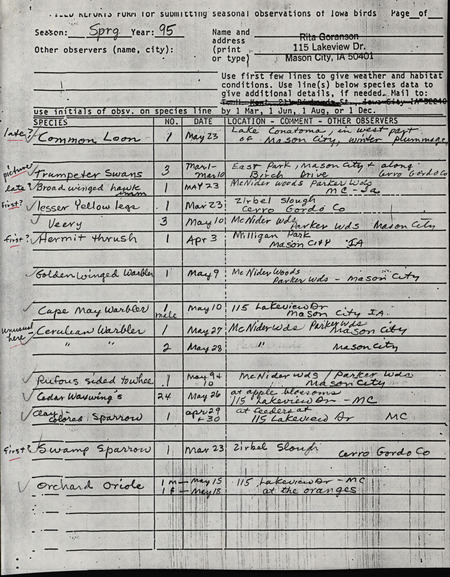 FIELD REPORTS FORM for submitting seasonal observations of Iowa birds Page of
Season: Sprg Year: 95
Name and address (print or type)
Rita Goranson
115 Lakeview Dr.
Mason City, IA 50401
Other observers (name, city):
Use first few lines to give weather and habitat
conditions. Use line(s) below species data to
give additional details, if needed. Mail to:
use initials of obsv. on species line by 1 Mar, 1 Jun, 1 Aug, or 1 Dec.
SPECIES NO. DATE LOCATION - COMMENT - OTHER OBSERVERS
late? ✓ Common Loon 1 May 23 Lake Conatoma, in west part
of Mason City, winter plummage
picture ✓ Trumpeter Swans 3 Mar 1- Mar 10 East Park, Mason City & along
Birch Drive Cerro Gordo Co
late? ✓ Broad winged hawk 1 MAY 23 McNider woods Parker Wds
MC - Ia
first? ✓ lesser Yellow legs 1 Mar 23 Zirbel Slough
Cerro Gordo Co
✓ Veery 3 May 10 McNider Wds
Parker Wds Mason City
first? ✓ Hermit thrush 1 Apr 3 Milligan Park
Mason City IA
✓ Golden Winged Warbler 1 May 9 McNider Woods
Parker Wds - Mason City
✓ Cape May Warbler 1 male May 10 115 Lakeview Dr
Mason City IA.
unusual here ✓ Cerulean Warbler 1 May 27 McNider Wds Parker Wds
Mason City
" " 2 May 28 " Mason City
✓ Rufous sided towhee 1 May 9 + 10 McNider Wds / Parker Wds
Mason City
✓ Cedar Waxwing's 24 May 26 at apple blossoms
115 Lakeview Dr - MC
✓ Clay Colored Sparrow 1 apr 29 + 30 at feeders at
115 Lakeview Dr MC
first? ✓ Swamp Sparrow 1 Mar 23 Zirbel Slough
Cerro Gordo Co
✓ Orchard Oriole 1 m - May 15 115 Lakeview Dr - MC
1 f - May 18 at the oranges